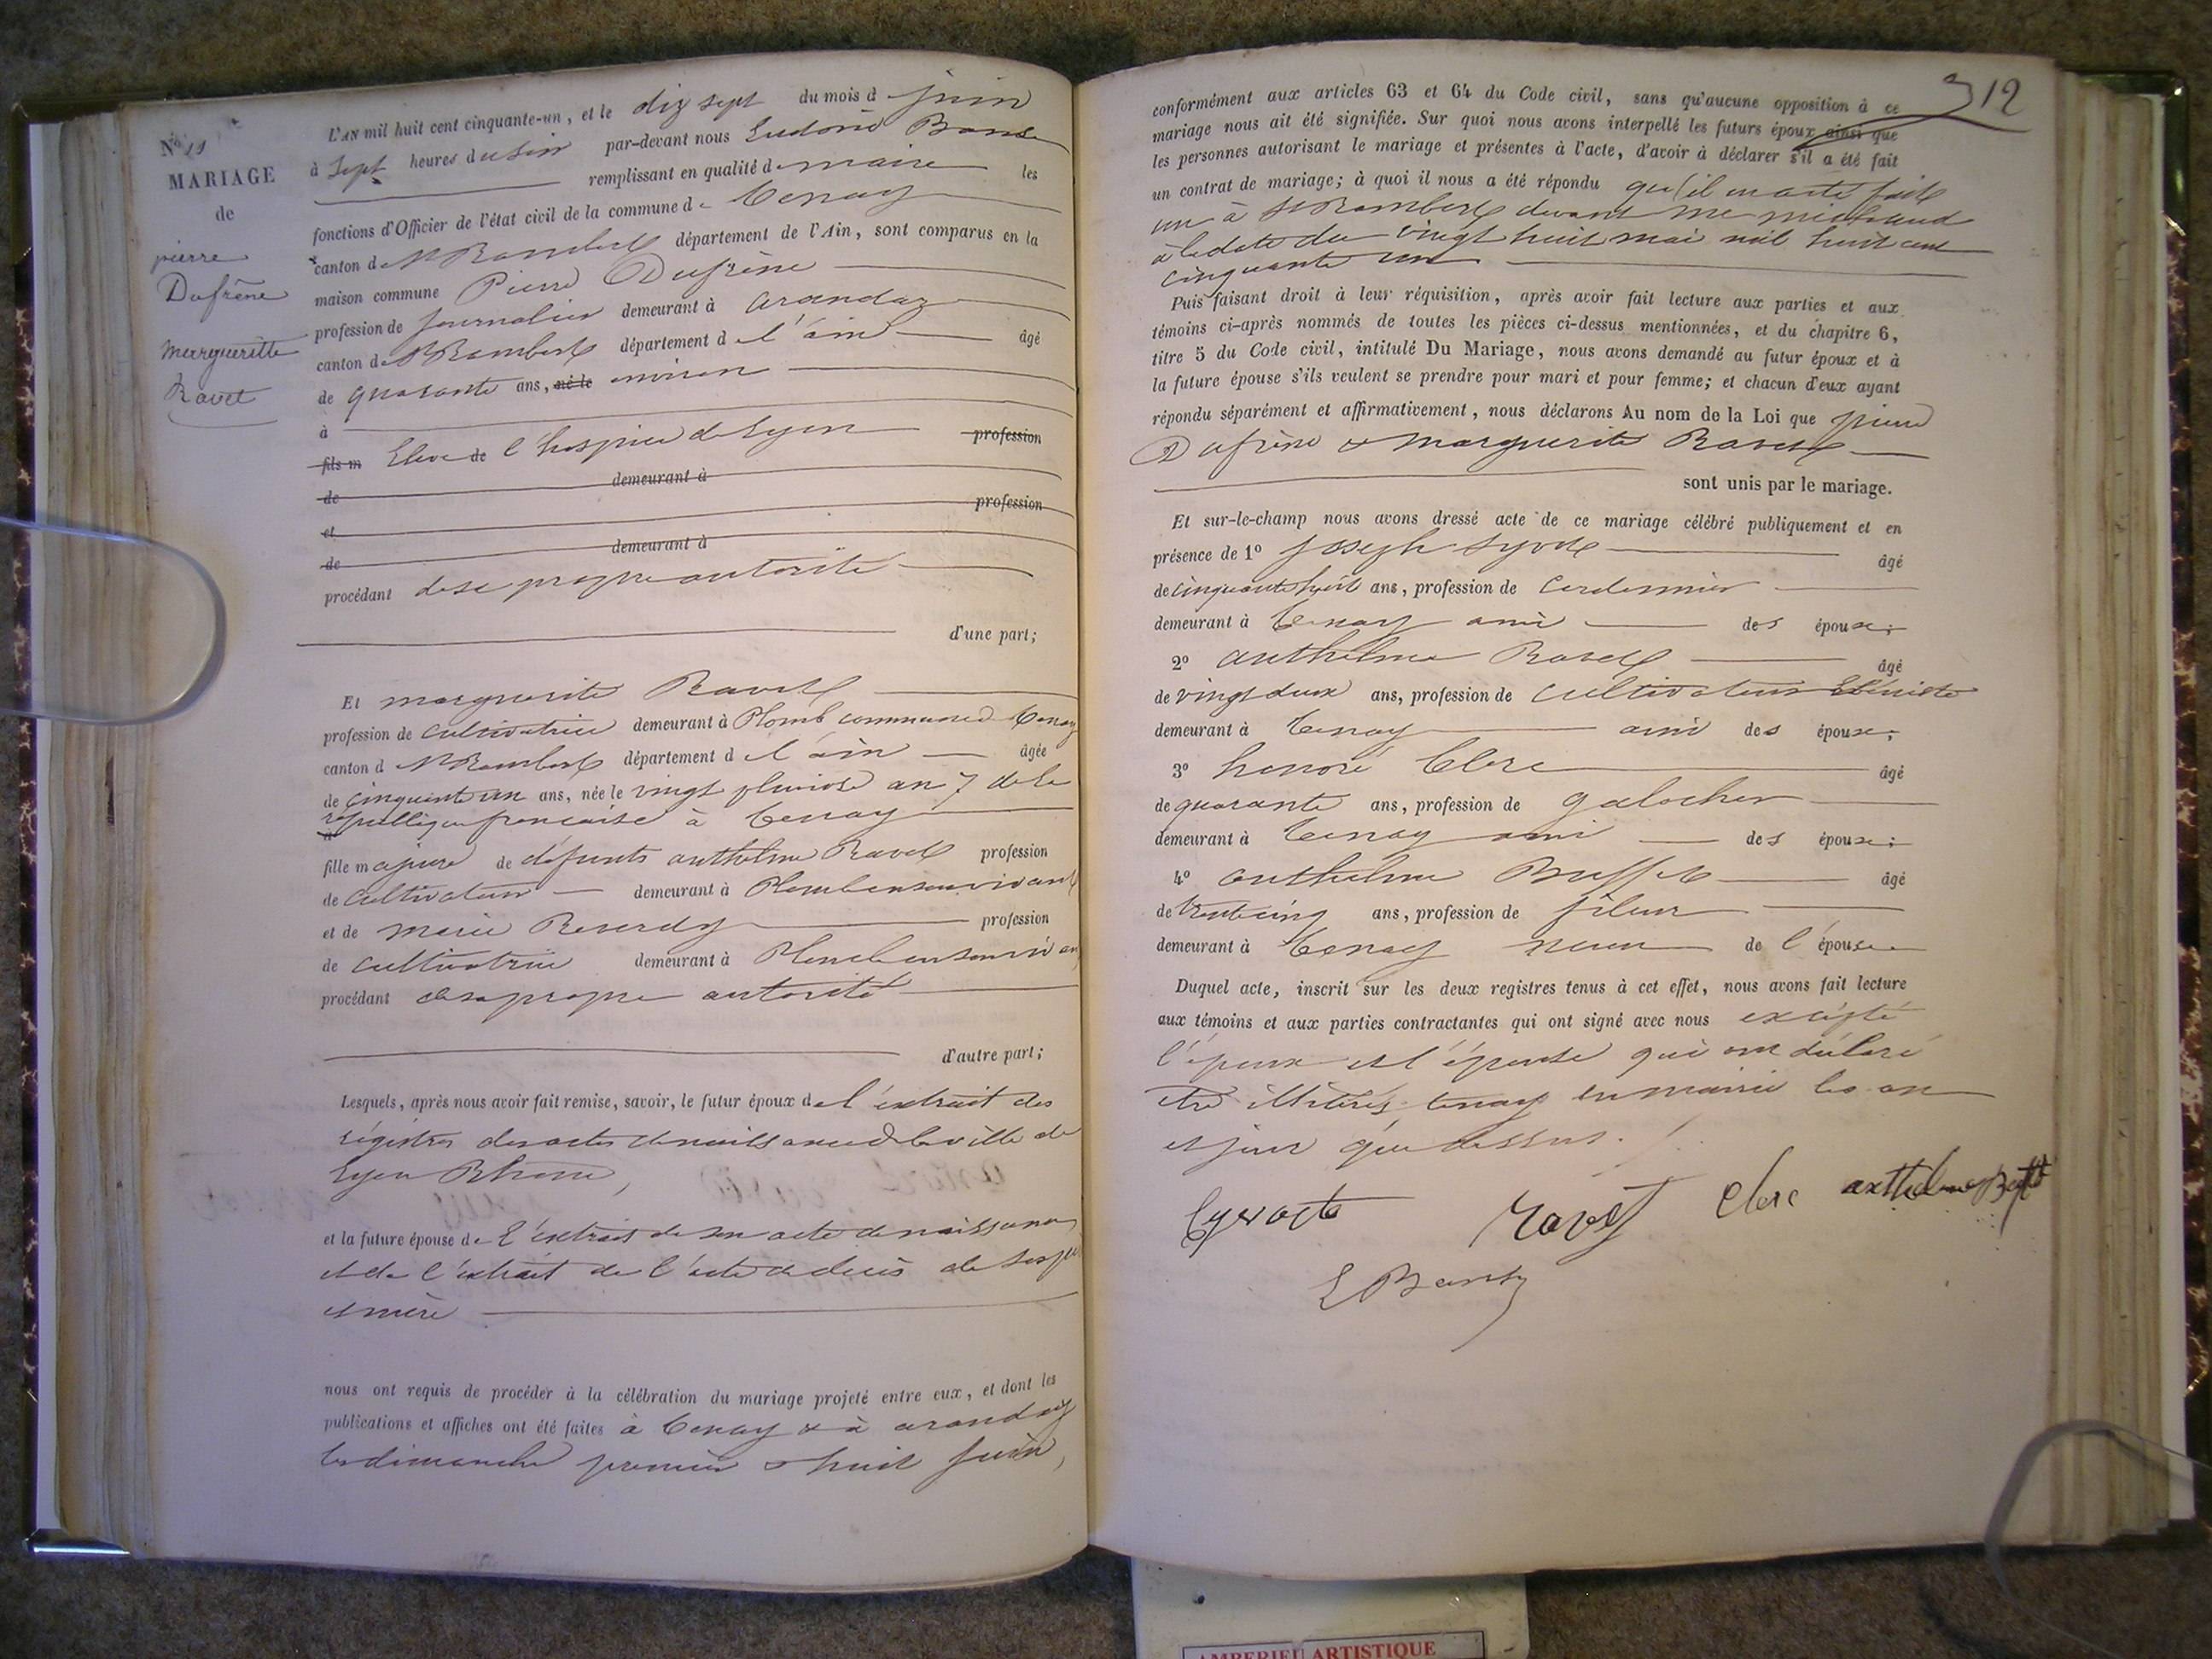 N° 11
MARIAGE
de
pierre
Dufrêne
Margueritte
Ravet
L'AN mil huit cent cinquante-un, et le dix sept du mois d juin
à Sept heures du Soir par-devant nous
remplissant en qualité de maire les
fonctions d'Officier de l'état civil de la commune de Tenay
canton de St Rambert département de l'Ain, sont comparus en la
maison commune Pierre Dufrène
profession de journalier demeurant à arandaz
canton de St Rambert département d l'ain âgé
de quarante ans, né le environ
à
fils m Eleve de l'hospice de Lyon profession
de demeurant à
et profession
de demeurant à
procédant de sa propre autorité
d'une part;
Et marguerite Ravet
profession de cultivatrice demeurant à Plomb commune d Tenay
canton d St Rambert département d l'ain âgée
de cinquante un ans, née le vingt pluviose an 7 de la
republique francaise à Tenay
fille majeure de défunts anthelme Ravet profession
de cultivateur demeurant à Plomb en son vivant
et de marie Reverdy profession
de cultivatrice demeurant à Plomb en son vivan
procédant de sa propre autorité
d'autre part;
Lesquels, après nous avoir fait remise, savoir, le futur époux de l'extrait des
régistres des actes de naissance de la ville de
Lyon Rhone,
et la future épouse de l'extrait de son acte de naissance
et de l'extrait de l'acte de décès de ses pe
et mère
nous ont requis de procéder à la célébration du mariage projeté entre eux, et dont les
publications et affiches ont été faites à Tenay & à arandaz
les dimanche premier & huit juin,
312
conformément aux articles 63 et 64 du Code civil, sans qu'aucune opposition à ce
mariage nous ait été signifiée. Sur quoi nous avons interpellé les futurs époux ainsi que
les personnes autorisant le mariage et présentes à l'acte, d'avoir à déclarer s'il a été fait
un contrat de mariage; à quoi il nous a été répondu qu'il en a été fait
un à St Rambert devant me
à la date du vingt huit mai mil huit cent
cinquante un
Puis faisant droit à leur réquisition, après avoir fait lecture aux parties et aux
témoins ci-après nommés de toutes les pièces ci-dessus mentionnées, et du chapitre 6,
titre 5 du Code civil, intitulé Du Mariage, nous avons demandé au futur époux et à
la future épouse s'ils veulent se prendre pour mari et pour femme; et chacun d'eux ayant
répondu séparément et affirmativement, nous déclarons Au nom de la Loi que pierre
Dufrène & marguerite Ravet
sont unis par le mariage.
Et sur-le-champ nous avons dressé acte de ce mariage célébré publiquement et en
présence de 1° joseph âgé
de cinquante huit ans, profession de cordonnier
demeurant à Tenay ami des époux;
2° anthelme Ravet âgé
de vingt deux ans, profession de cultivateur
demeurant à Tenay ami des époux;
3° honoré Clerc âgé
de quarante ans, profession de galocher
demeurant à Tenay ami des époux;
4° anthelme Buffet âgé
de trente cinq ans, profession de fileur
demeurant à Tenay neveu de l'épouse
Duquel acte, inscrit sur les deux registres tenus à cet effet, nous avons fait lecture
aux témoins et aux parties contractantes qui ont signé avec nous excépté
l'époux et l'épouse qui ont déclaré
etre illitérés tenay en mairie les an
et jour que dessus.
Ravet Clerc
AMBERIEU ARTISTIQUE